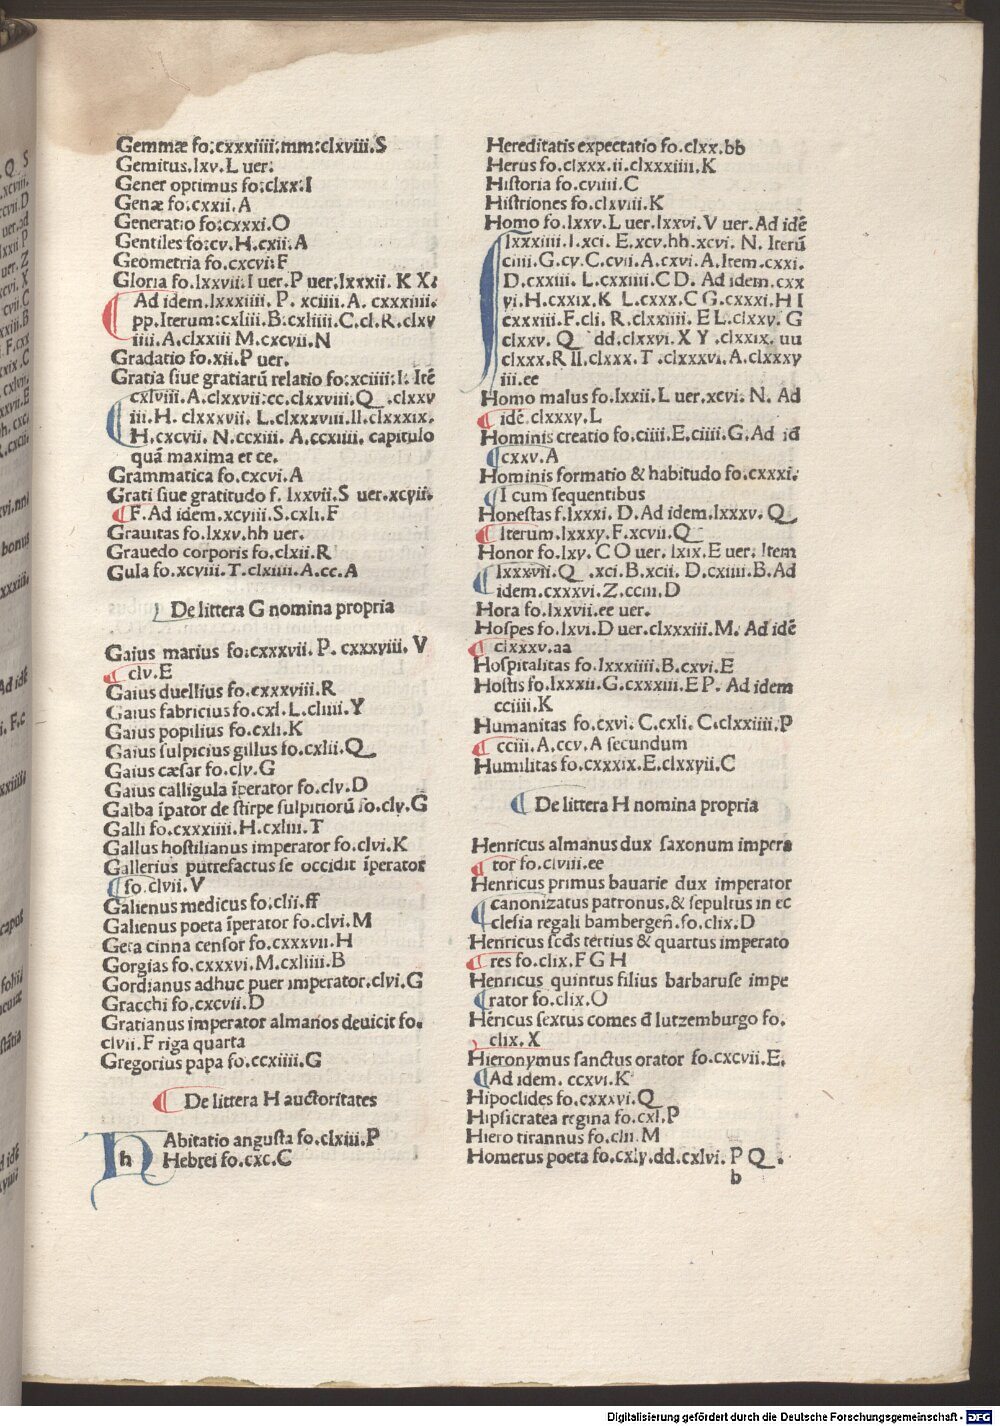 Gemmæ fo:cxxxiiii:mm:clxviii.S
Gemitus.lxv.L uer:
Gener optimus fo:clxx:I
Genæ fo:cxxii.A
Generatio fo:cxxxi.O
Gentiles fo:cv.H.cxii.A
Geometria fo.cxcvi:F
Gloria fo.lxxvii:I uer.P uer.lxxxii. K X:
Ad idem.lxxxiiii. P. xciiii.A. cxxxiiii.
pp.Iterum:cxliii.B.cxliiii.C.cl.R.clxv
iiii.A.clxxiii M.cxcvii.N
Gradatio fo.xii.P uer.
Gratia ſiue gratiarū relatio fo:xciiii:I. Itē
cxlviii.A.clxxvii:cc.clxxviii.Q .clxxv
iii.H. clxxxvii. L.clxxxviii.II.clxxxix.
H.cxcvii. N.ccxiii. A.ccxiiii. capitulo
quā maxima et ce.
Grammatica fo.cxcvi.A
Grati ſiue gratitudo f. lxxvii.S uer.xcvii.
F.Ad idem.xcviii.S.cxli.F
Grauitas fo.lxxv.hh uer.
Grauedo corporis fo.clxii.R
Gula fo.xcviii.T.clxiiii.A.cc.A
De littera G nomina propria
Gaius marius fo:cxxxvii. P. cxxxviii. V
clv.E
Gaius duellius fo.cxxxviii.R
Gaius fabricius fo.cxl.L.cliiii.Y
Gaius popilius fo.cxli.K
Gaius ſulpicius gillus fo.cxlii.Q
Gaius cæſar fo.clv.G
Gaius calligula īperator fo.clv.D
Galba īpator de ſtirpe ſulpitiorū fo.clv.G
Galli fo.cxxxiiii.H.cxliii.T
Gallus hoſtilianus imperator fo.clvi.K
Gallerius putrefactus ſe occidit īperator
fo.clvii.V
Galienus medicus fo.clii.ff
Galienus poeta īperator fo.clvi.M
Geta cinna cenſor fo.cxxxvii.H
Gorgias fo.cxxxvi.M.cxliiii.B
Gordianus adhuc puer imperator.clvi.G
Gracchi fo.cxcvii.D
Gratianus imperator almanos deuicit fo.
clvii.F riga quarta
Gregorius papa fo.ccxiiii.G
De littera H auctoritates
h Abitatio anguſta fo.clxiii.P
Hebrei fo.cxc.C
Hereditatis expectatio fo.clxx.bb
Herus fo.clxxx.ii.clxxxiiii.K
Hiſtoria fo.cviiii.C
Hiſtriones fo.clxviii.K
Homo fo.lxxv.L uer.lxxvi.V uer.Ad idē
lxxxiiii.I.xci. E.xcv.hh.xcvi. N. Iterū
ciiii.G.cv.C.cvii.A.cxvi.A.Item.cxxi.
D.cxxiii. L.cxxiiii.C D. Ad idem.cxx
vi.H.cxxix.K L.cxxx.C G.cxxxi.H I
cxxxiii.F.cli. R.clxxiiii. E L.clxxv. G
clxxv. Q dd.clxxvi. X Y .clxxix. uu
clxxx.R II.clxxx.T .clxxxvi.A.clxxxv
iii.ee
Homo malus fo.lxxii.L uer.xcvi. N. Ad
idē.clxxxv.L
Hominis creatio fo.ciiii.E.ciiii.G.Ad id
cxxv.A
Hominis formatio & habitudo fo.cxxxi.
I cum ſequentibus
Honeſtas f.lxxxi. D.Ad idem.lxxxv. Q
Iterum.lxxxv.F.xcvii.Q
Honor fo.lxv. C O uer. lxix.E uer. Item
lxxxvii.Q .xci.B.xcii. D.cxiiii.B.Ad
idem.cxxxvi.Z.cciii.D
Hora fo.lxxvii.ee uer.
Hoſpes fo.lxvi.D uer.clxxxiii.M. Ad idē
clxxxv.aa
Hoſpitalitas fo.lxxxiiii.B.cxvi.E
Hoſtis fo.lxxxii.G.cxxxiii.E P. Ad idem
cciiii.K
Humanitas fo.cxvi. C.cxli. C.clxxiiii.P
cciii.A.ccv.A ſecundum
Humilitas fo.cxxxix.E.clxxvii.C
De littera H nomina propria
Henricus almanus dux ſaxonum impera
tor fo.clviii.ee
Henricus primus bauarie dux imperator
canonizatus patronus.& ſepultus in ec
cleſia regali bambergeñ.fo.clix.D
Henricus ſcđs tertius & quartus imperato
res fo.clix.F G H
Henricus quintus filius barbaruſe impe
rator fo.clix.O
Hēricus ſextus comes đ lutzemburgo fo.
clix.X
Hieronymus ſanctus orator fo.cxcvii.E.
Ad idem. ccxvi.K
Hipoclides fo.cxxxvi.Q
Hipſicratea regina fo.cxl.P
Hiero tirannus fo.cliii.M
Homerus poeta fo.cxlv.dd.cxlvi. P Q .
b
Digitalisierung gefördert durch die Deutsche Forschungsgemeinschaft - DFG